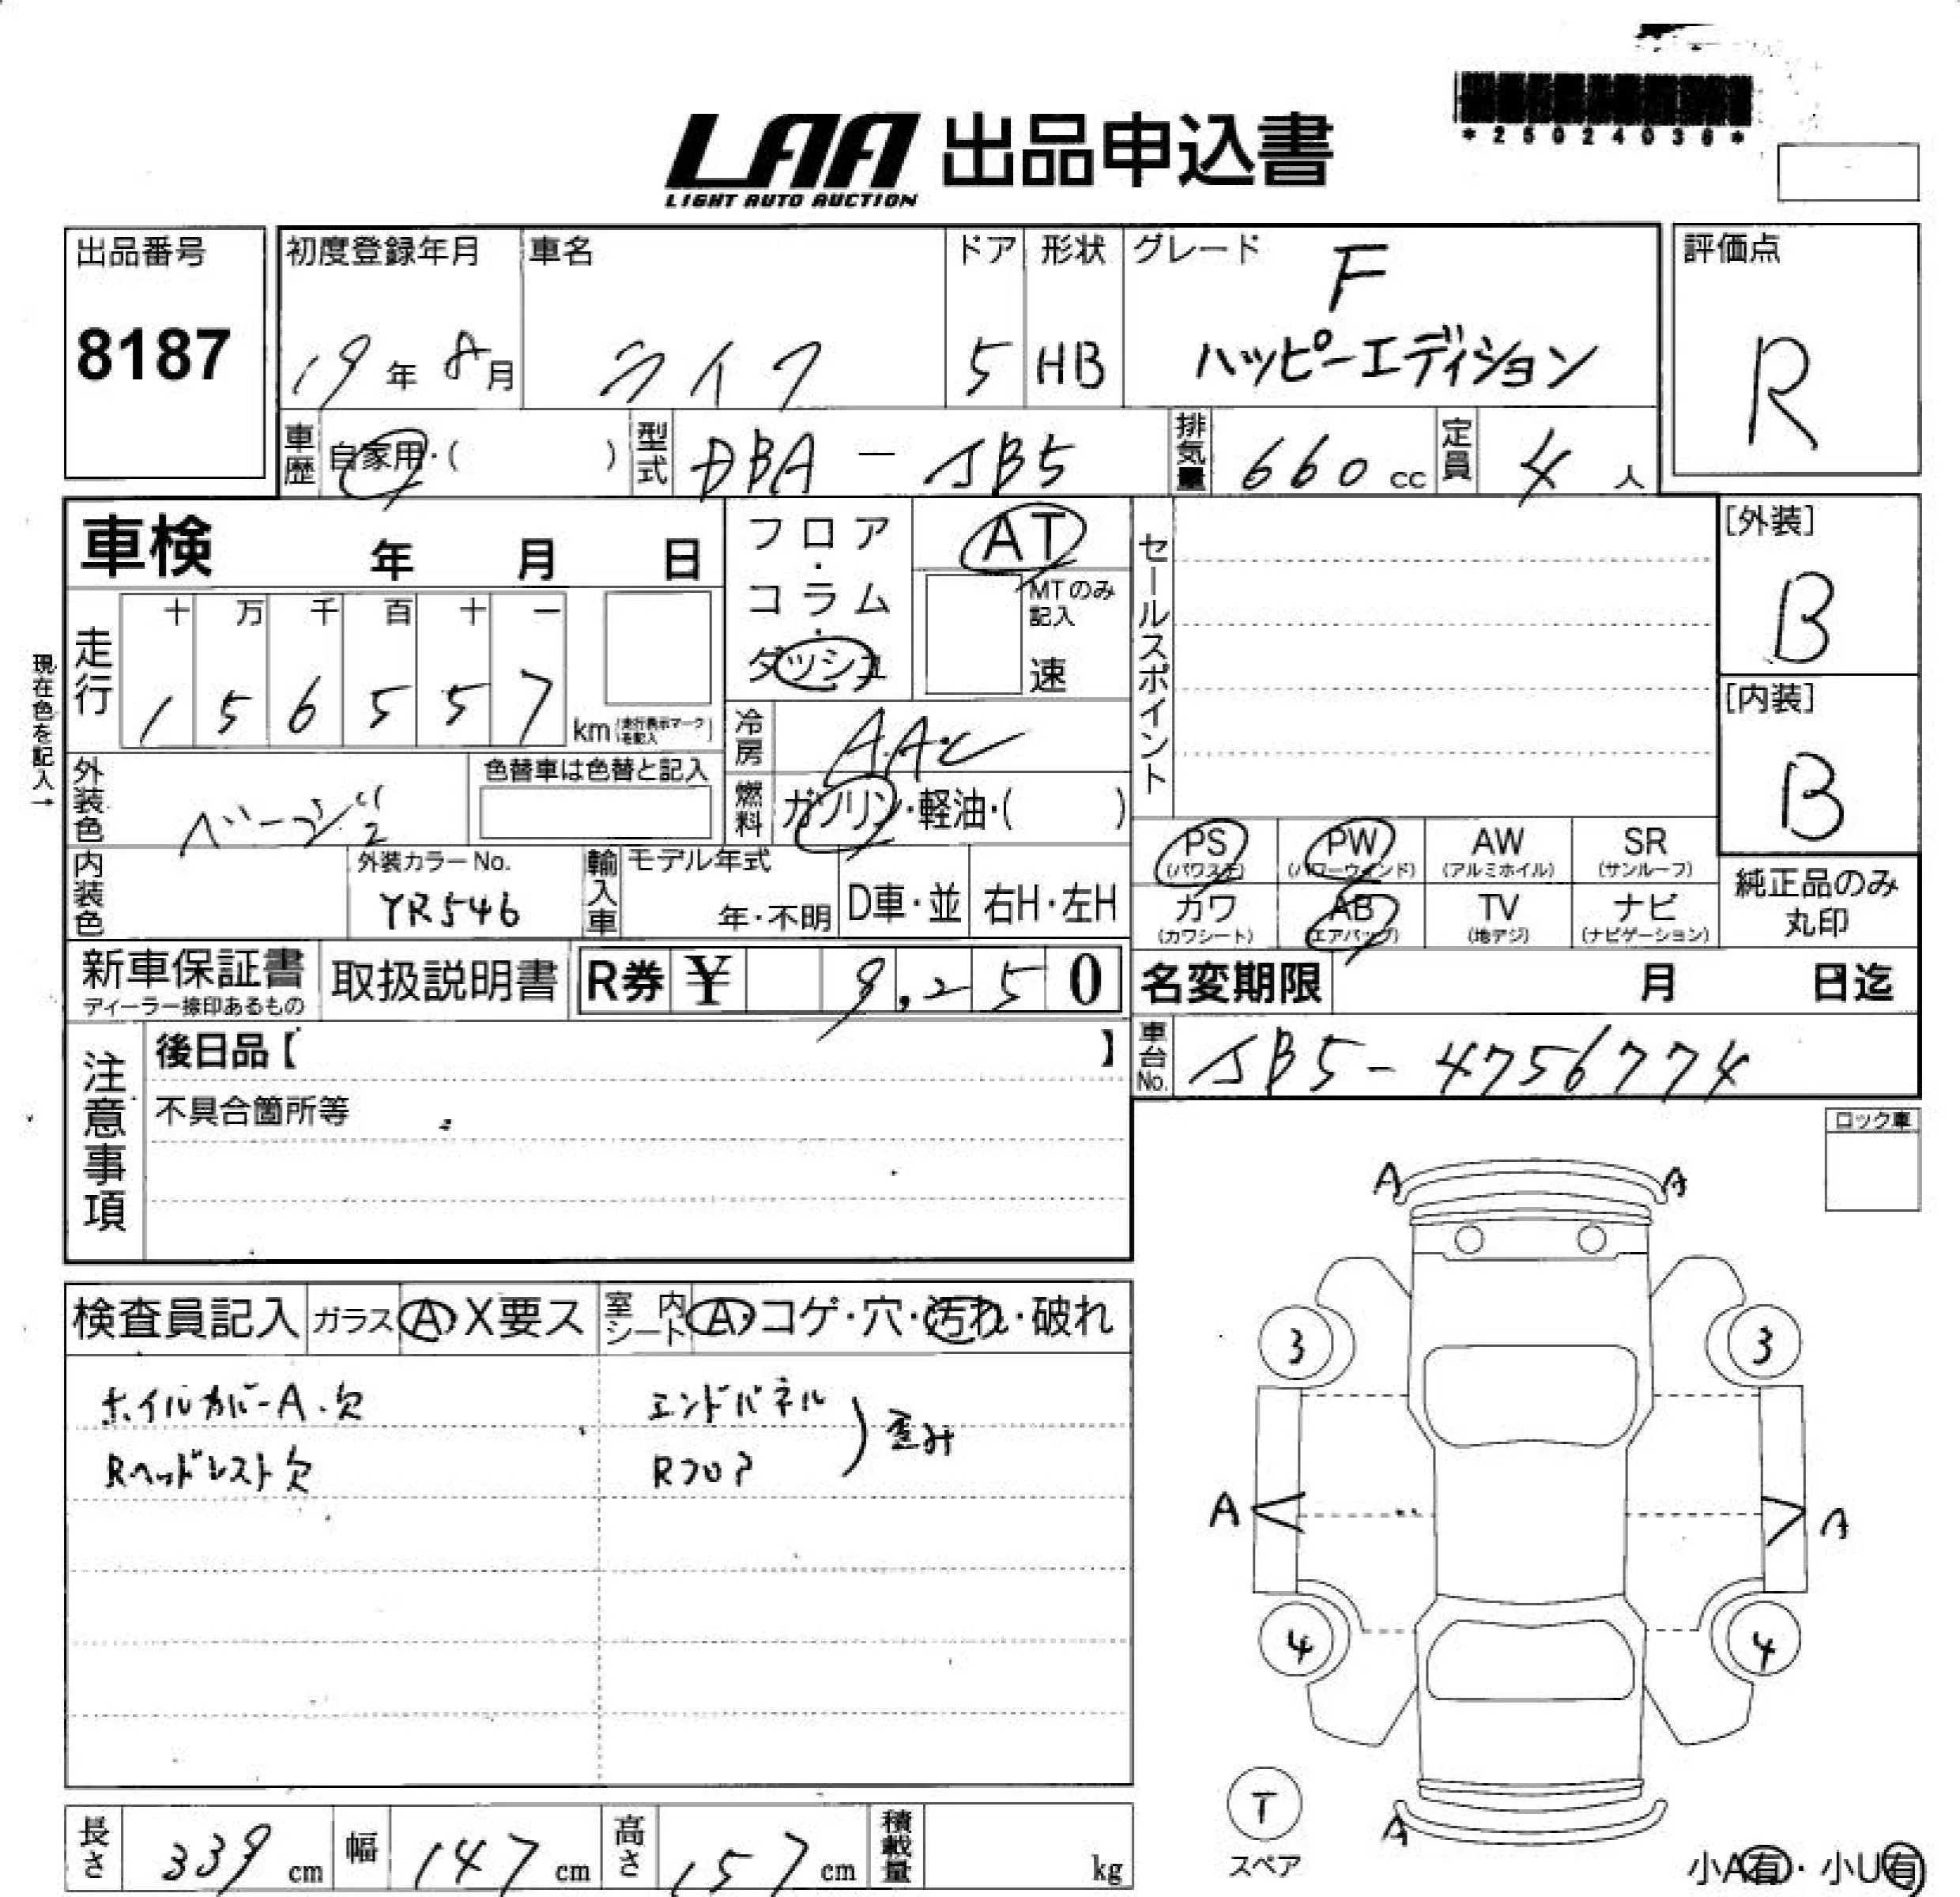 *25024036*
LAA 出品申込書
LIGHT AUTO AUCTION
出品番号
8187
初度登録年月
19年 8月
車名
ライフ
ドア
5
形状
HB
グレード
F
ハッピーエディション
評価点
R
車歴 自家用・( )
型式 DBA - JB5
排気量 660 cc
定員 4 人
車検 年 月 日
フロア・コラム・ダッシュ
AT
MTのみ記入
速
セールスポイント
[外装]
B
[内装]
B
現在色を記入→
走行 十 万 千 百 十 一
1 5 6 5 5 7 km (走行表示マークを記入)
冷房 AAC
外装色 ベージュ
色替車は色替と記入
燃料 ガソリン・軽油・( )
内装色
外装カラーNo.
YR546
輸入車 モデル年式
年・不明
D車・並
右H・左H
PS (パワステ)
PW (パワーウィンド)
AW (アルミホイル)
SR (サンルーフ)
カワ (カワシート)
AB (エアバッグ)
TV (地デジ)
ナビ (ナビゲーション)
純正品のみ
丸印
新車保証書
ディーラー捺印あるもの
取扱説明書
R券 ¥ 9,250
名変期限 月 日迄
注意事項
後日品【 】
不具合箇所等
車台No. JB5-4756774
ロック車
A A
3 3
A A
4 4
検査員記入 ガラス A・X要ス 室内シート A・コゲ・穴・汚れ・破れ
ホイルカバーA.欠
Rヘッドレスト欠
エンドパネル
Rフロア
歪み
T
スペア
A
長さ 339 cm 幅 147 cm 高さ 157 cm 積載量 kg
小A有・小U有